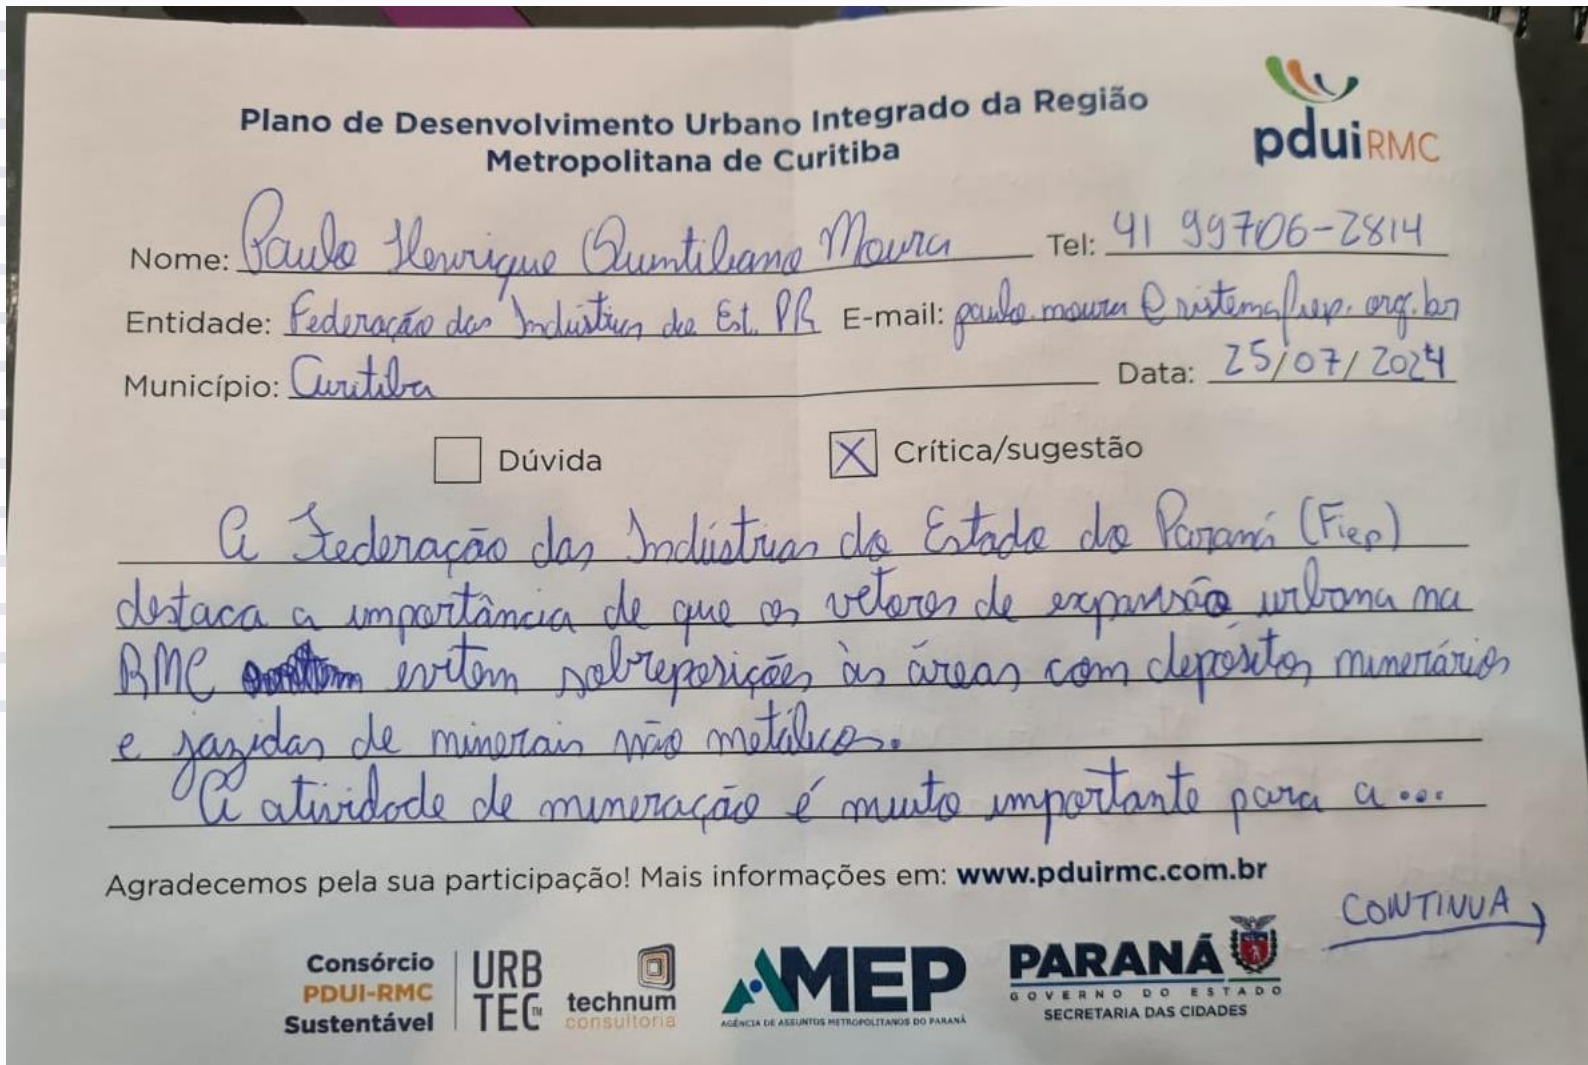 Plano de Desenvolvimento Urbano Integrado da Região
Metropolitana de Curitiba
pduiRMC
Nome: Paulo Henrique Quintiliano Moura Tel: 41 99706-2814
Entidade: Federação das Indústrias do Est. PR E-mail: paulo.moura@sistemafiep.org.br
Município: Curitiba Data: 25/07/2024
Dúvida X Crítica/sugestão
A Federação das Indústrias do Estado do Paraná (Fiep)
destaca a importância de que os vetores de expansão urbana na
RMC evitem sobreposições às áreas com depósitos minerários
e jazidas de minerais não metálicos.
A atividade de mineração é muito importante para a...
Agradecemos pela sua participação! Mais informações em: www.pduirmc.com.br
CONTINUA
Consórcio
PDUI-RMC
Sustentável
URB
TEC™
technum
consultoria
AMEP
AGÊNCIA DE ASSUNTOS METROPOLITANOS DO PARANÁ
PARANÁ
GOVERNO DO ESTADO
SECRETARIA DAS CIDADES